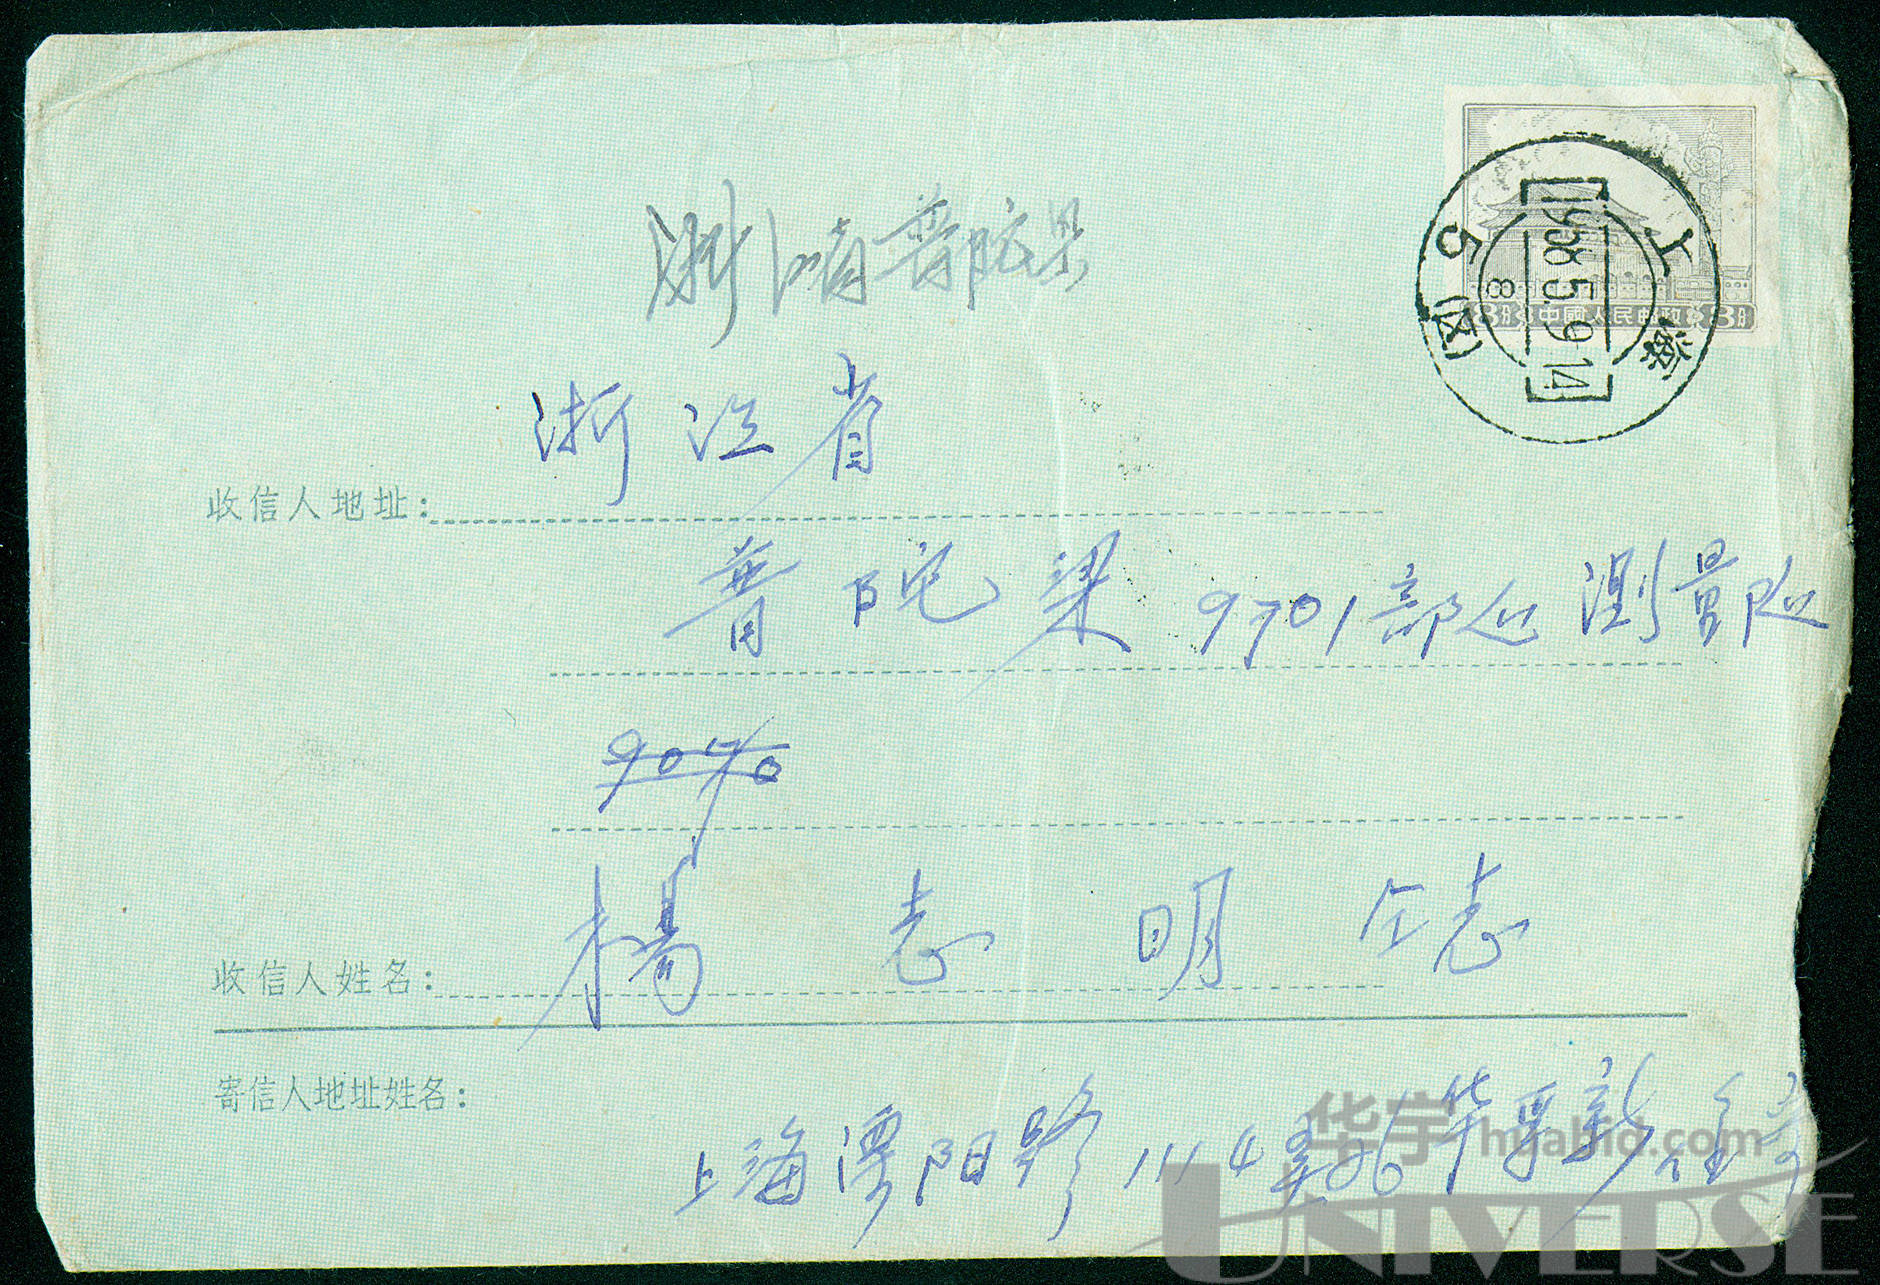 8分 中國人民郵政 8分
上海
1958.5.9.14
8
5(区)
浙江省普陀县
浙江省
收信人地址:
普陀 9701部队测量队
9070
收信人姓名: 楊志明仝志
寄信人地址姓名:
上海溧阳路1114弄26 华 新
华宇 huabid.com
UNIVERSE